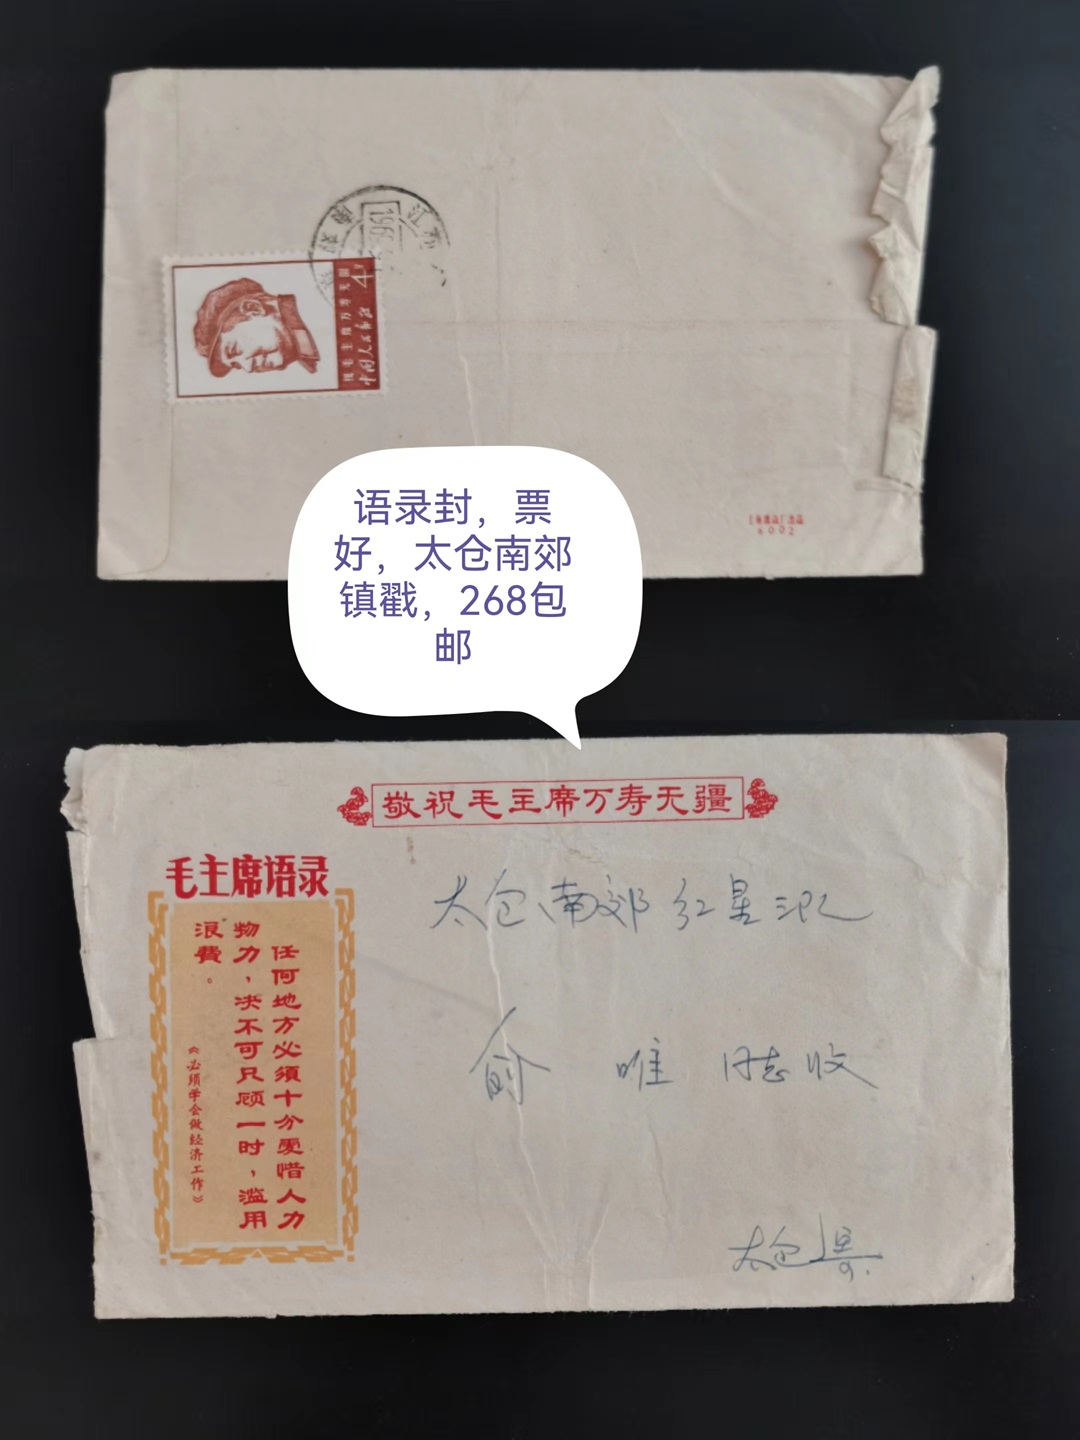 中国人民邮政
祝毛主席万寿无疆
4
语录封，票
好，太仓南郊
镇戳，268包
邮
6002
敬祝毛主席万寿无疆
毛主席语录
任何地方必须十分爱惜人力
物力，决不可只顾一时，滥用
浪費。
《必须学会做经济工作》
太仓南郊红星
俞 唯 同志收
太仓